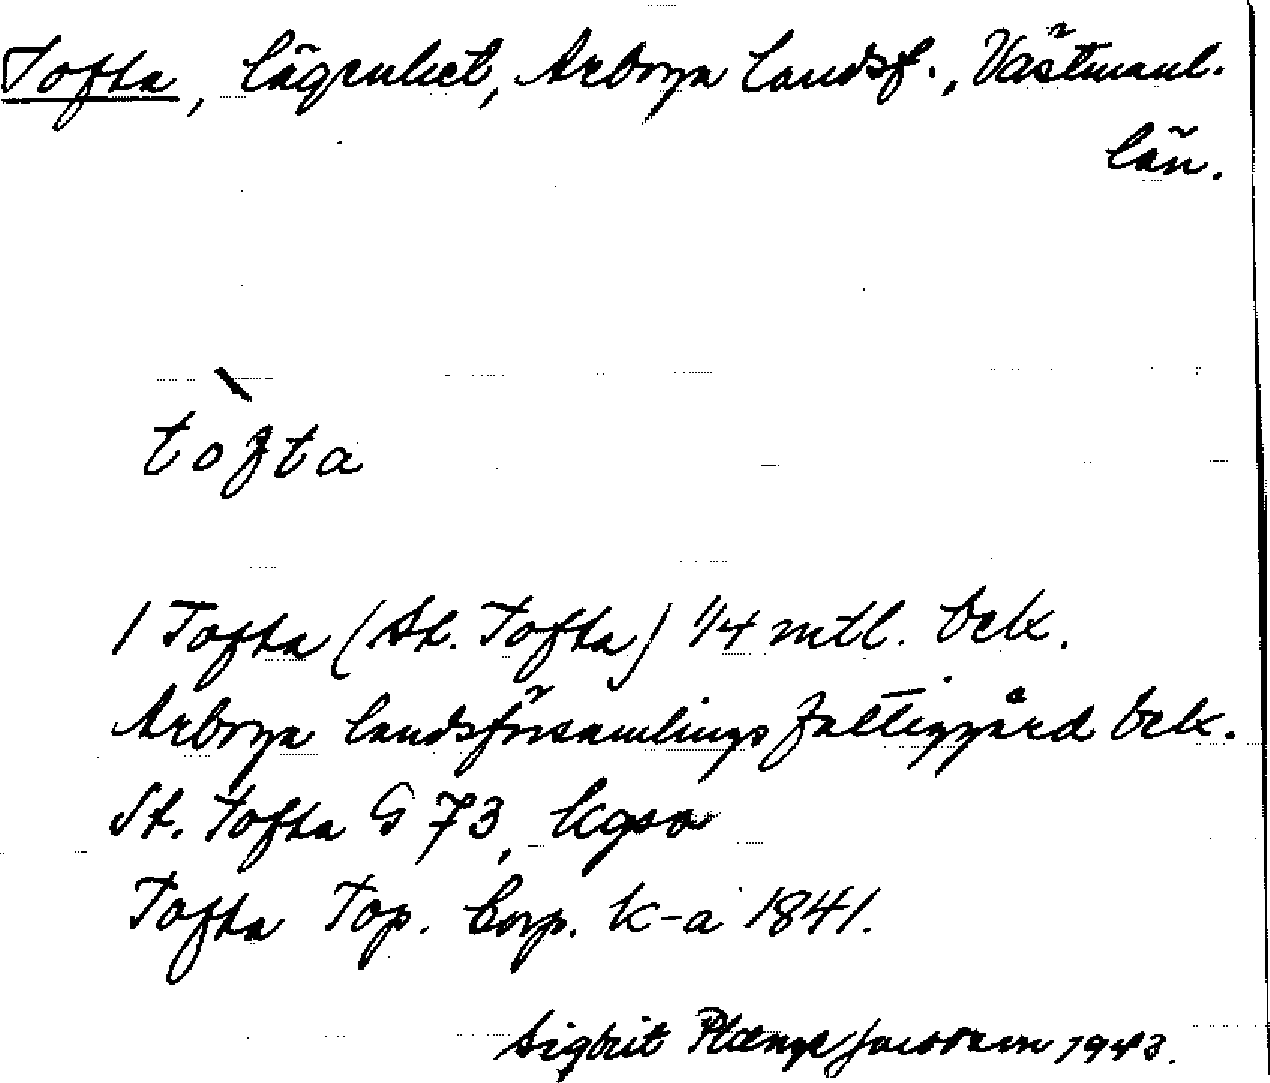 Tofta, lägenhet, Arboga landsf., Västmanl.
län.
tofta
1 Tofta (St. Tofta) 1/4 mtl. bek.
Arboga landsförsamlings fattiggård bek.
St. Tofta G 73, kgsa
Tofta Top. Corp. k-a 1841.
Sigbrit Plænge Jacobson 1943.